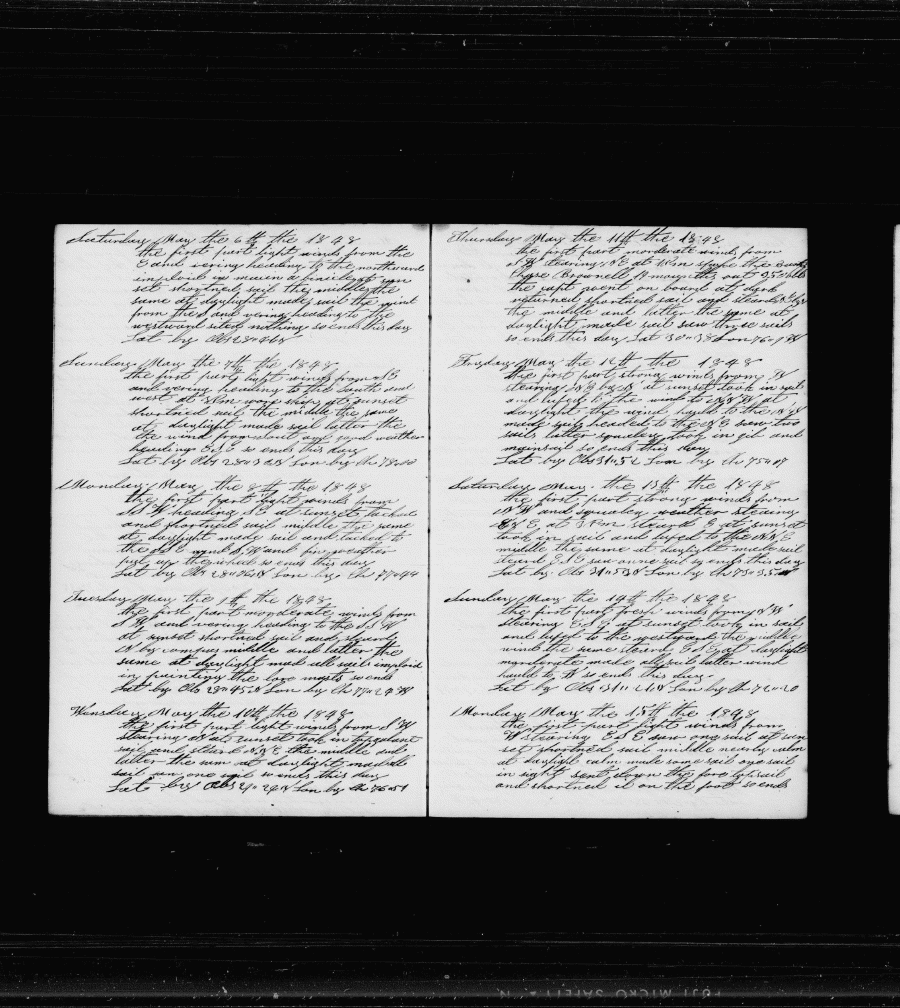 Saturday May the 6th the 1848
the first part light winds from the
E and vering heading to the northward
imploid in
set shortned sail the middle the
same at daylight made sail the wind
from the S and vering heading to the
westward sited nothing so ends this day
Lat by Obs 28=46N
Sunday May the 7th the 1848
the first part light winds from SE
and vering heading to the South and
west at wore ship at sunset
shortned sail the middle the same
at daylight made sail latter the
the wind from about and good weather
heading ESE so ends this day
Lat by Obs 28=03N Lon by Ch 78=00
Monday May the 8th the 1848
the first part light winds from
SSW heading SE at sunset tacked
and shortned sail middle the same
at daylight made sail and tacked to
the SE wind SW and fin weather
so ends this day
Lat by Obs 28=26N Lon by Ch 77=44
Tuesday May the 9th the 1848
the first part monderate winds from
SW and vering heading to the SSW
at sunset shortned sail and steard
N by compus middle and latter the
same at daylight mad all sail imploid
in painting the lore masts so ends
Lat by Obs 28=45N Lon by Ch 77=24W
Wensday May the 10th the 1848
the first part light winds from SW
stearing N at sunset took in topgallant
sail and steard NNE the middle and
latter the sam at daylight mad
sail saw one sail so ends this day
Lat by Obs 29=29N Lon by Ch 76=51
Thursday May the 11th the 1848
the first part monderate winds from
SW stearing NE at spoke the
Brownell A months out 95
the capt went on board at dark
returned shortned sail and steard
the middle and latter the same at
daylight made sail saw three sails
so ends this day Lat 30=38 Lon 76=19W
Friday May the 12th the 1848
the first part strong winds from W
stearing NE by N at sunset took in sail
and lufed to the wind to NNW at
daylight the wind hauld to the NW
made sail headed to the NE saw two
sails latter squaley took in gib and
mainsail so ends this day
Lat by Obs 31=52 Lon by Ch 75=07
Saturday May the 13th the 1848
the first part strong winds from
NW and squaley weather stearing
at steard E at sunset
took in sail and lufed to the NNE
middle the same at daylight made sail
steard ESE saw one sail so ends this day
Lat by Obs 31=53N Lon by Ch 73=35
Sunday May the 14th the 1848
the first part fresh winds from NW
stearing ESE at sunset took in sail
and lufed to the westward the middle
wind the same steard ESE at daylight
monderate made all sail latter wind
hauld to W so ends this day
Lat by Obs 31=21N Lon by Ch 72=20
Monday May the 15th the 1848
the first part light winds from
W stearing ESE saw one sail at sun
set shortned sail middle nearly calm
at daylight calm made some sail one sail
in sight sent down the fore topsail
and shortned it on the foot so ends